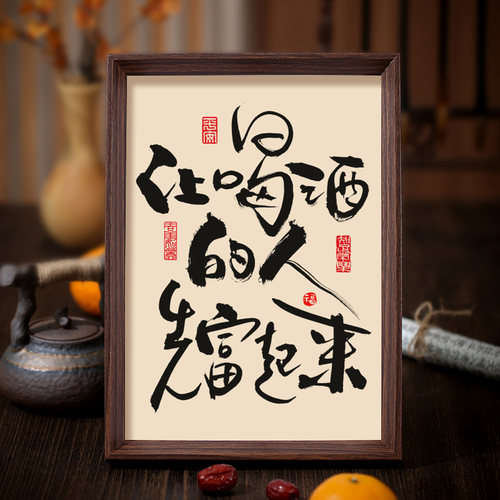 让喝酒
的人
先富起来
平安